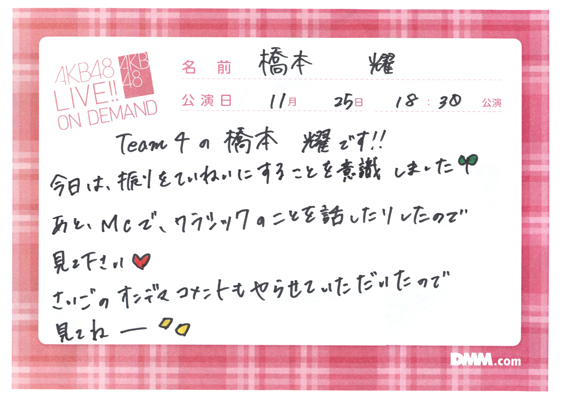 AKB48
LIVE!!
ON DEMAND
AKB
48
名 前 橋本 耀
公演日 11月 25日 18:30 公演
Team 4 の 橋本 耀です!!
今日は、振りをていねいにすることを意識しました
あと、MCで、クラシックのことを話したりしたので
見て下さい
さいごのオンデマコメントもやらせていただいたので
見てねー
DMM.com